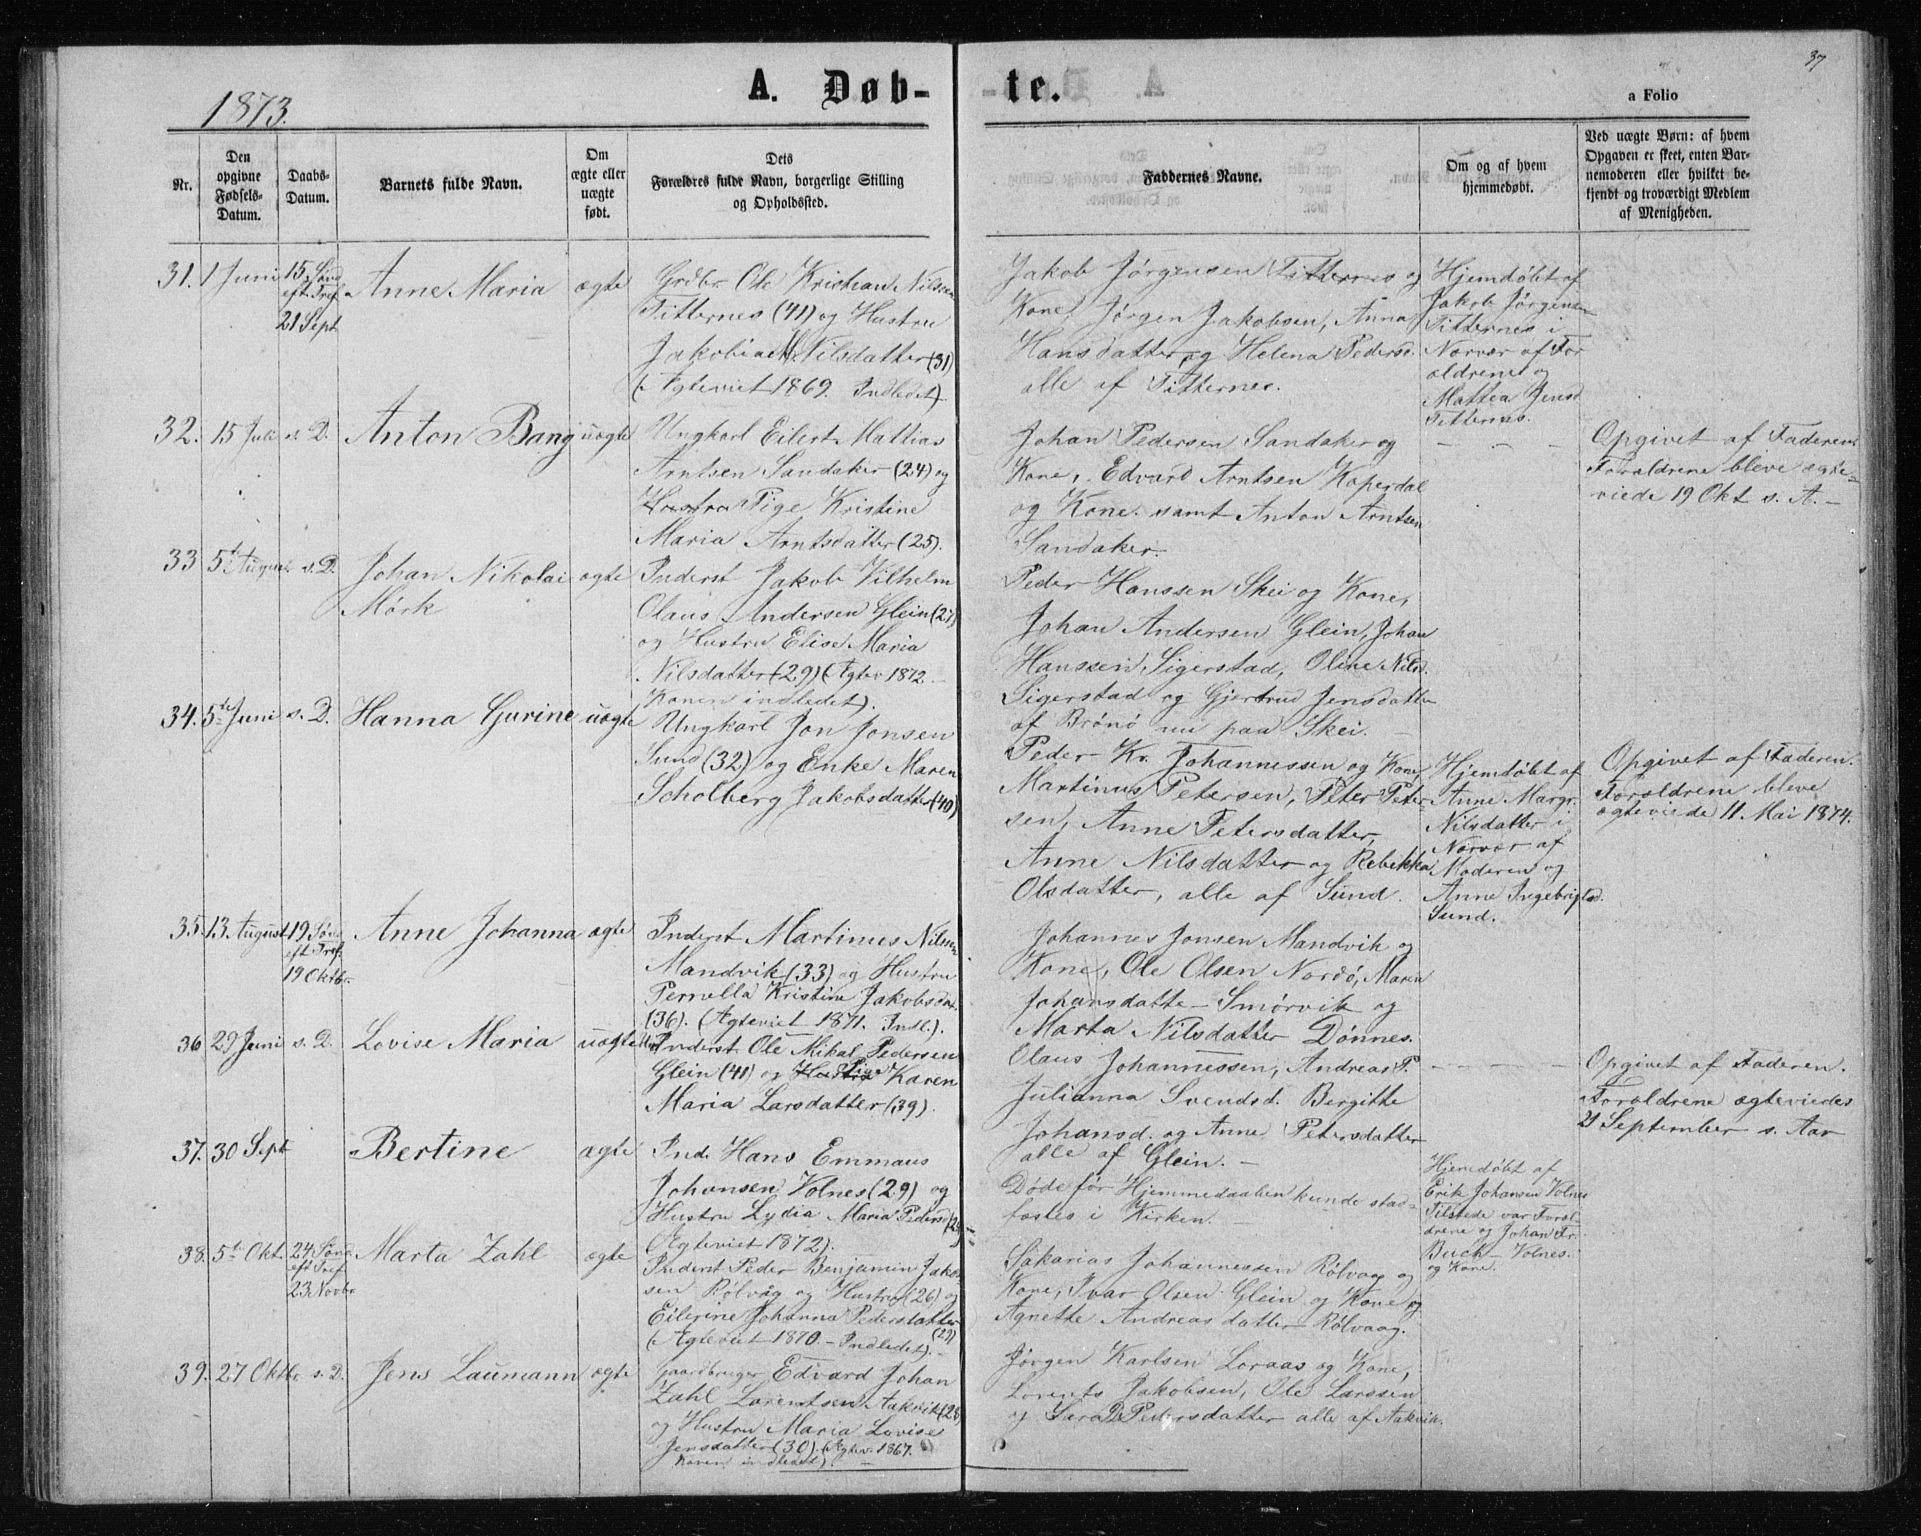 37
A. Døb-
te.
a Folio
1873.
Nr.
Den opgivne Fødsels-Datum.
Daabs-Datum.
Barnets fulde Navn.
Om ægte eller uægte født.
Dets Forældres fulde Navn, borgerlige Stilling og Opholdssted.
Faddernes Navne.
Om og af hvem hjemmedøbt.
Ved uægte Børn: af hvem Opgaven er skeet, enten Barnemoderen eller hvilket bekjendt og troværdigt Medlem af Menigheden.
31. 1 Juni
15 Sønd
eft Tref.
21 Sept
Anne Maria
ægte
Grdbr Ole Kristian Nilsen
Titternes (41) og Hustru
Jakobia Nilsdatter (31)
(Ægteviet 1869. Indledet).
Jakob Jørgensen Titternes og
Kone, Jørgen Jakobsen, Anna
Hansdatter og Helena Pedersd.
alle af Titternes.
Hjemdøbt af
Jakob Jørgensen
Titternes i
Nærvær af For
ældrene og
Mattea Jensd
Titternes.
32. 15 Juli s. D. Anton Bang uægte
Ungkarl Eilert Mattias
Arntsen Sandaker (24) og
Hustru Pige Kristine
Maria Arntsdatter (25).
Johan Pedersen Sandaker og
Kone, Edvard Arntsen Koperdal
og Kone samt Anton Arntsen
Sandaker.
Opgivet af Faderen.
Forældrene bleve ægte-
viede 19 Okt s. A. -
33 5te August s. D. Johan Nikolai ægte
Mörk
Inderst Jakob Vilhelm
Olaus Andersen Glein (21)
og Hustru Elise Maria
Nilsdatter (29) (Ægtev 1872. -
Konen indledet).
Peder Hanssen Skei og Kone,
Johan Andersen Glein, Johan
Hanssen Sigerstad, Oline Nilsd.
Sigerstad og Gjertrud Jensdatter
af Brönö nu paa Skei.
34. 5te Juni s. D. Hanna Gurine uægte
Ungkarl Jon Jonsen
Sund (32) og Enke Maren
Scholberg Jakobsdatter (40)
Peder Kr. Johannessen og Kone,
Martinus Petersen, Peter Peter-
sen, Anne Petersdatter,
Anne Nilsdatter og Rebekka
Olsdatter, alle af Sund.
Hjemdøbt af
Anne Margr.
Nilsdatter i
Nærvær af
Moderen og
Anne Ingebrigtsd.
Sund.
Opgivet af Faderen.
Forældrene bleve
ægteviede 11. Mai 1874.
35. 13 August 19 Sønd
eft Tref.
19 Oktbr.
Anne Johanna ægte
Inderst Martinus Nilsen
Mandvik (33) og Hustru
Pernella Kristine Jakobsdat
(36). (Ægteviet 1871. Indl).
Johannes Jonsen Mandvik og
Kone, Ole Olsen Nordö, Maren
Johansdatter Smörvik og
Marta Nilsdatter Dönnes.
36 29 Juni s. D. Lovise Maria uægte
Inderst Ole Mikal Pedersen
Glein (41) og Hustru Pige Karen
Maria Larsdatter (39).
Olaus Johannessen, Andreas P.
Julianna Svendsd. Bergitte
Johansd. og Anne Petersdatter
alle af Glein. -
Opgivet af Faderen.
Forældrene ægteviedes
21 September s. Aar
37. 30 Sept Bertine ægte
Ind. Hans Emmaus
Johansen Volnes (29) og
Hustru Lydia Maria Pedersd
(Ægteviet 1872).
Döde før Hjemmedaaben kunde stad-
fæstes i Kirken. -
Hjemdøbt af
Erik Johansen Volnes
Tilstede var Foræl-
drene og Johan Fr.
Buch Volnes.
og Kone.
38. 5te Okt. 24 Sønd
eft Tref.
23 Novbr
Marta Zahl ægte
Inderst Peder Benjamin Jakob-
sen Rölvåg og Hustru (26) og
Eilerine Johanna Pedersdatter
(Ægteviet 1870. - Indledet). (29)
Sakarias Johannessen Rölvaag og
Kone, Ivar Olsen Glein og Kone og
Agnette Andreasdatter Rölvaag.
39. 27 Oktbr. s. D. Jens Laumann ægte
Gaardbruger Edvard Johan
Zahl Lorentsen Aakvik (28)
og Hustru Maria Lovise
Jensdatter (30). (Ægtev. 1867.
Konen indledet). -
Jørgen Karlsen Loraas og Kone,
Lorents Jakobsen, Ole Larssen
og Sara Pedersdatter alle af Aakvik.